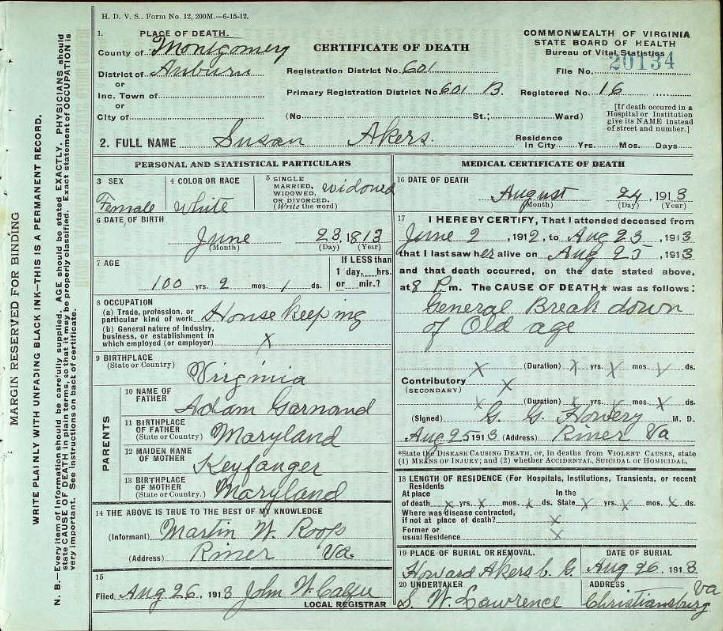 H. D. V. S., Form No. 12, 200M.—6-15-12.
1. PLACE OF DEATH.
County of Montgomery
District of Auburn
or
Inc. Town of
or
City of
CERTIFICATE OF DEATH
Registration District No. 601
Primary Registration District No. 601 B
(No. St.; Ward)
COMMONWEALTH OF VIRGINIA
STATE BOARD OF HEALTH
Bureau of Vital Statistics
File No. 20134
Registered No. 16
[If death occured in a Hospital or Institution give its NAME instead of street and number.]
2. FULL NAME Susan Akers.
Residence In City Yrs. Mos. Days
PERSONAL AND STATISTICAL PARTICULARS
3 SEX
Female
4 COLOR OR RACE
White
5 SINGLE MARRIED, WIDOWED, OR DIVORCED. (Write the word)
widowed
6 DATE OF BIRTH
June 23, 1813
(Month) (Day) (Year)
7 AGE
100 yrs. 2 mos. 1 ds.
If LESS than 1 day, hrs. or min.?
8 OCCUPATION
(a) Trade, profession, or particular kind of work House keeping
(b) General nature of Industry, business, or establishment in which employed (or employer) X
9 BIRTHPLACE
(State or Country)
Virginia
PARENTS
10 NAME OF FATHER
Adam Garnand
11 BIRTHPLACE OF FATHER
(State or Country) Maryland
12 MAIDEN NAME OF MOTHER
Keyfanger
13 BIRTHPLACE OF MOTHER
(State or Country) Maryland
14 THE ABOVE IS TRUE TO THE BEST OF MY KNOWLEDGE
(Informant) Martin W. Roop
(Address) Riner Va.
15
Filed, Aug 26, 1913 John W
LOCAL REGISTRAR
MEDICAL CERTIFICATE OF DEATH
16 DATE OF DEATH
August 24, 1913
(Month) (Day) (Year)
17 I HEREBY CERTIFY, That I attended deceased from
June 2, 1912, to Aug 23, 1913
that I last saw her alive on Aug 23, 1913
and that death occurred, on the date stated above,
at 8 P.m. The CAUSE OF DEATH* was as follows:
General Break down
of Old age
X (Duration) X yrs. X mos. X ds.
Contributory X
(SECONDARY)
X (Duration) X yrs. X mos. X ds.
(Signed) G. G. Howery M. D.
Aug 25 1913 (Address) Riner Va
*State the DISEASE CAUSING DEATH, or, in deaths from VIOLENT CAUSES, state (1) MEANS OF INJURY; and (2) whether ACCIDENTAL, SUICIDAL OR HOMICIDAL.
18 LENGTH OF RESIDENCE (For Hospitals, Institutions, Transients, or recent Residents
At place of death X yrs. X mos. X ds. In the State X yrs. X mos. X ds.
Where was disease contracted, if not at place of death? X
Former or usual Residence X
19 PLACE OF BURIAL OR REMOVAL. DATE OF BURIAL
Howard Akers C. G. Aug 26, 1913
20 UNDERTAKER ADDRESS
S. W. Lawrence Christiansburg Va
MARGIN RESERVED FOR BINDING
WRITE PLAINLY WITH UNFADING BLACK INK—THIS IS A PERMANENT RECORD.
N. B.—Every item of information should be carefully supplied. AGE should be stated EXACTLY. PHYSICIANS should state CAUSE OF DEATH in plain terms, so that it may be properly classified. Exact statement of OCCUPATION is very important. See instructions on back of certificate.